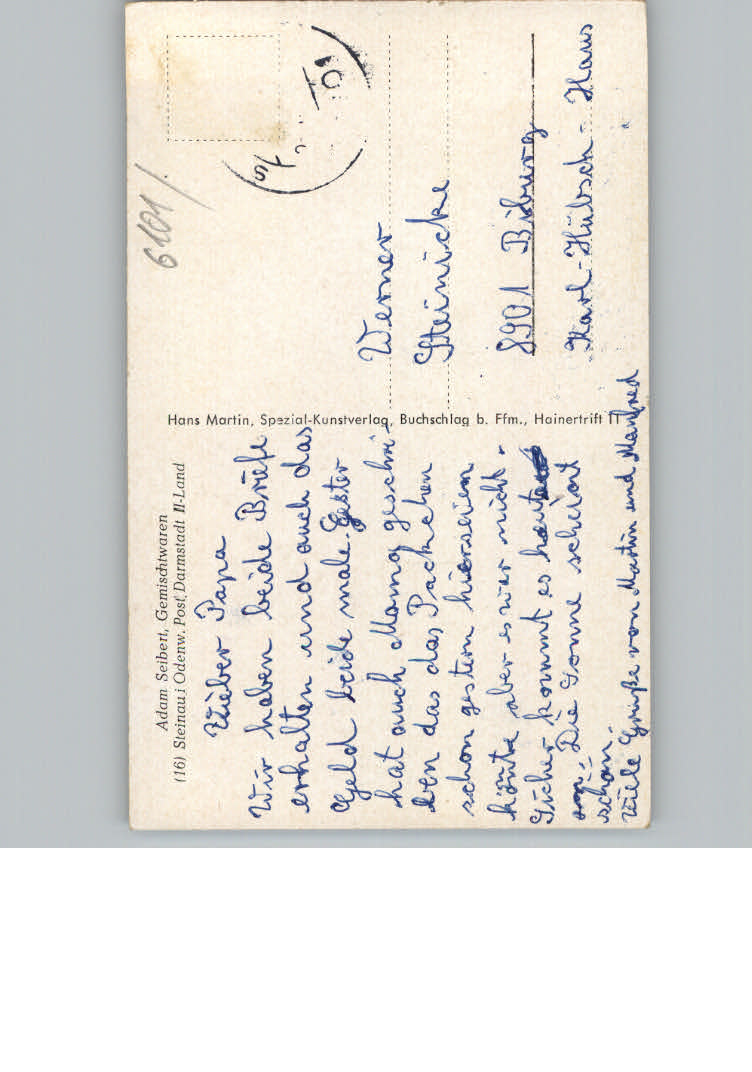 Adam Seibert, Gemischtwaren
(16) Steinau i Odenw. Post Darmstadt II-Land
Lieber Papa
Wir haben beide Briefe
erhalten und auch das
Geld beide male. Gester
hat auch Mama geschri-
ben das das Päckchen
schon gestern hierseien
könte aber es war nicht.
Sicher kommt es heute
an. Die Sonne scheint
schön.
Viele Grüße von Martin und Manfred
Hans Martin, Spezial-Kunstverlag, Buchschlag b. Ffm., Hainertrift 11
6101/
Werner
Steinicke
8901 Biburg
Karl-Hübsch-Haus